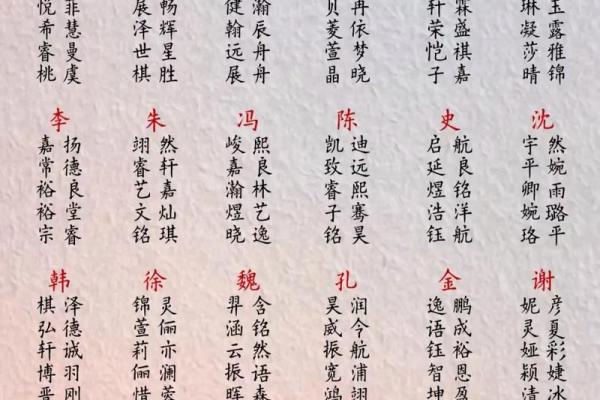 悦菲 展畅 健瀚 贝冉 轩霖 琳玉
希慧 泽辉 翰辰 菱依 荣盛 凝露
睿曼 世星 远舟 萱梦 恺祺 莎雅
桃虞 棋胜 展舟 晶晓 子嘉 晴锦
李 朱 冯 陈 史 沈
嘉扬 翊然 峻熙 凯迪 启航 宇然
常德 睿轩 嘉良 致远 延良 平婉
裕良 艺嘉 瀚林 睿熙 煜铭 卿雨
裕堂 文灿 煜艺 子骞 浩洋 婉璐
宗睿 铭琪 晓逸 铭昊 钰航 珞平
韩 徐 魏 孔 金 谢
棋泽 锦灵 羿含 昊润 逸鹏 妮彦
弘德 萱俪 涵铭 威今 语成 灵夏
轩诚 莉亦 云然 振航 钰裕 娅彩
博羽 俪澜 振语 宽浦 智恩 颖婕
晋刚 惜 晖森 翊 坤盈 清冰